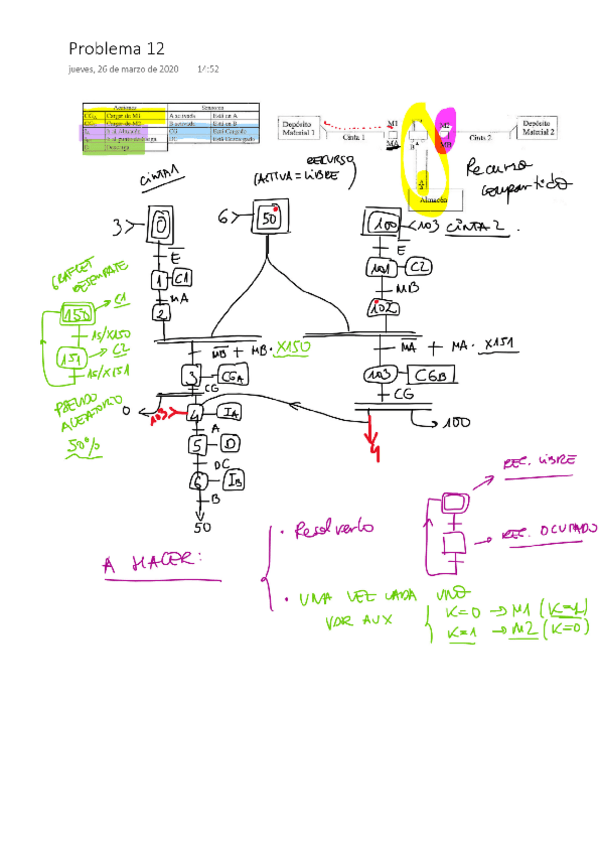 Problema 12
jueves, 26 de marzo de 2020 14:52
Acciones
Sensores
Cargar de M1
A activada
Está en A
Cargar de M2
Está en B
CG
Está Cargado
Descarga
Depósito
Material 1
M1
MA
Cinta 1
B
M2
MB
Cinta 2
Depósito
Material 2
A
Almacén
Recurso
compartido
CINTA1
RECURSO
(ACTIVA = LIBRE)
3
0
6
50
100
103 CINTA 2.
E
E
1
C1
101
C2
MA
MB
2
102
GRAFCET
DESEMPATE
150
C1
1s/X150
151
C2
1s/X151
PSEUDO
ALEATORIO
50%
MB + MB · X150
MA + MA · X151
3
CGA
103
CGB
CG
CG
0
103
4
IA
100
4
A
5
D
DC
6
IB
B
50
REC. LIBRE
REC. OCUPADO
A HACER:
· Resolverlo
· UNA VEZ CADA UNO
VAR AUX
K=0 → M1 (K=1)
K=1 → M2 (K=0)